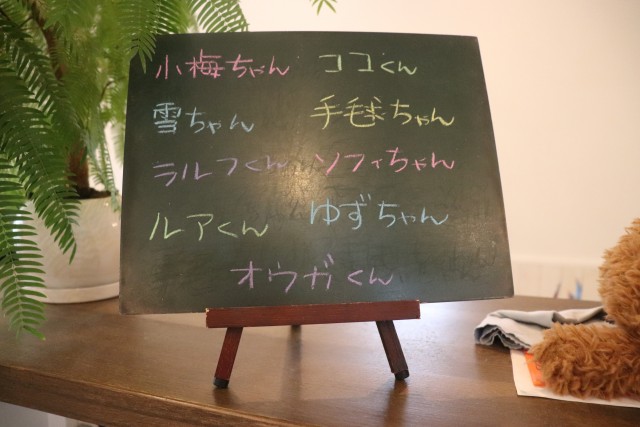 小梅ちゃん ココくん
雪ちゃん 手毬ちゃん
ラルフくん ソフィちゃん
ルアくん ゆずちゃん
オウガくん